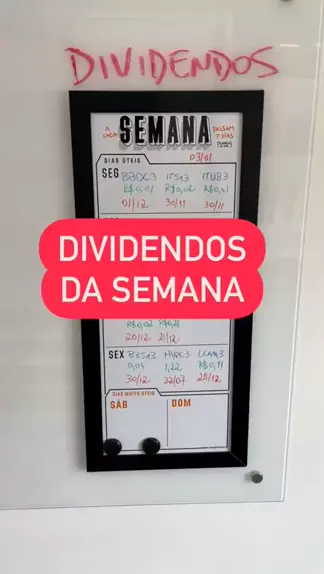 DIVIDENDOS
A CADA
SEMANA
PASSAM
7 DIAS
DIAS ÚTEIS
03/01
SEG BBDC3 ITSA3 ITUB3
R$0,01 R$0,02 R$0,01
01/12 30/11 30/11
DIVIDENDOS
DA SEMANA
R$0,02 R$0,21
20/12 21/12
SEX B3SA3 HYPE3 LCAM3
0,04 1,22 R$0,11
30/12 22/07 28/12
DIAS MUITO ÚTEIS
SÁB DOM